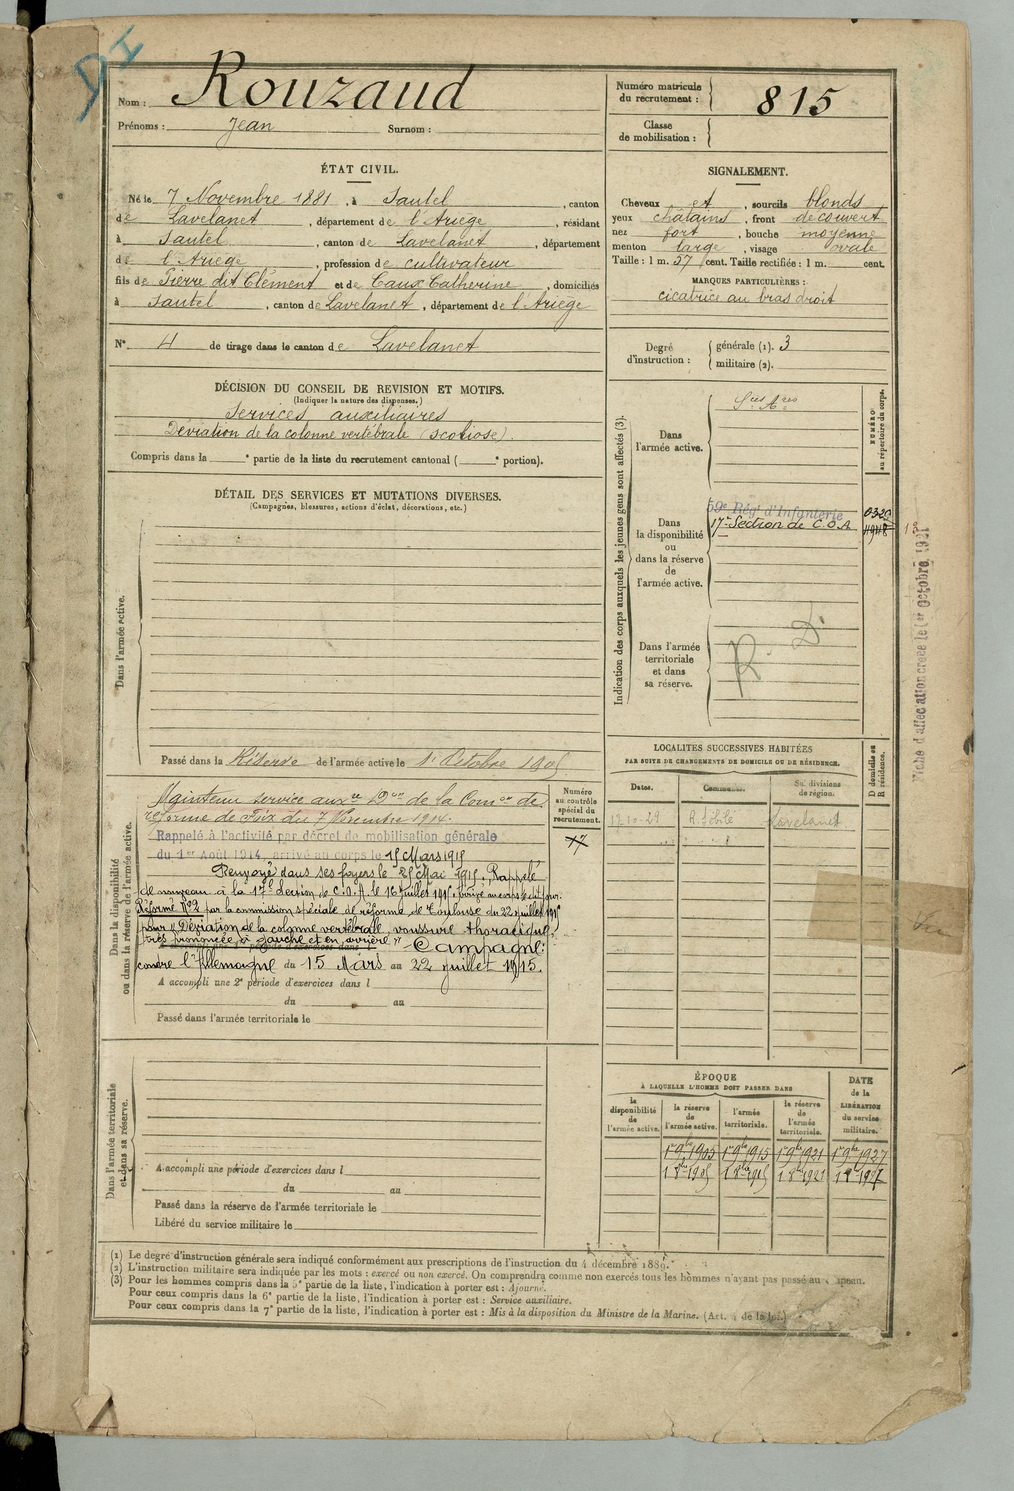 Nom : Rouzaud
Prénoms : Jean Surnom :
Numéro matricule
du recrutement :
815
Classe
de mobilisation :
ÉTAT CIVIL.
Né le 7 Novembre 1881, à Sautel, canton
de Lavelanet, département de l'Ariège, résidant
à Sautel, canton de Lavelanet, département
de l'Ariège, profession de cultivateur
fils de Pierre dit Clément et de Caux Catherine, domiciliés
à Sautel, canton de Lavelanet, département de l'Ariège
N° 4 de tirage dans le canton de Lavelanet
SIGNALEMENT.
Cheveux et, sourcils blonds
yeux châtains, front découvert
nez fort, bouche moyenne
menton large, visage ovale
Taille : 1 m. 57 cent. Taille rectifiée : 1 m. cent.
MARQUES PARTICULIÈRES :
cicatrice au bras droit
Degré
d'instruction :
générale (1). 3
militaire (2).
DÉCISION DU CONSEIL DE REVISION ET MOTIFS.
(Indiquer la nature des dispenses.)
Services auxiliaires
Déviation de la colonne vertébrale (scoliose).
Compris dans la e partie de la liste du recrutement cantonal ( e portion).
DÉTAIL DES SERVICES ET MUTATIONS DIVERSES.
(Campagnes, blessures, actions d'éclat, décorations, etc.)
Dans l'armée active.
Passé dans la Réserve de l'armée active le 1er Octobre 1905
Dans la disponibilité
ou dans la réserve de l'armée active.
Numéro
au contrôle
spécial du
recrutement.
Maintenu service auxre Don de la Comon de
réforme de Foix du 7 Novembre 1914.
Rappelé à l'activité par décret de mobilisation générale
du 1er Août 1914, arrivé au corps le 15 Mars 1915
Renvoyé dans ses foyers le 25 Mai 1915. Rappelé
de nouveau à la 17e Section de C.O.A. le 16 juillet 1915, arrivé au corps le dit jour.
Réformé N°2 par la commission spéciale de réforme de Toulouse du 22 juillet 1915
pour "Déviation de la colonne vertébrale, voussure thoracique,
très prononcée à gauche et en arrière" Campagne:
contre l'Allemagne du 15 Mars au 22 juillet 1915.
A accompli une 2e période d'exercices dans l
du au
Passé dans l'armée territoriale le
Dans l'armée territoriale
et dans sa réserve.
A accompli une période d'exercices dans l
du au
Passé dans la réserve de l'armée territoriale le
Libéré du service militaire le
Indication des corps auxquels les jeunes gens sont affectés (3).
NUMÉRO
au répertoire du corps.
Dans
l'armée active.
Sces Ares
Dans
la disponibilité
ou
dans la réserve
de
l'armée active.
59e Régt d'Infanterie
17e Section de C.O.A
Dans l'armée
territoriale
et dans
sa réserve.
R. D.
Fiche d'affectation créée le 1er Octobre 1921
LOCALITÉS SUCCESSIVES HABITÉES
PAR SUITE DE CHANGEMENTS DE DOMICILE OU DE RÉSIDENCE.
D domicile ou
R résidence.
Dates. Communes. Subdivisions
de région.
Lavelanet
ÉPOQUE
À LAQUELLE L'HOMME DOIT PASSER DANS
DATE
de la
LIBÉRATION
du service
militaire.
la
disponibilité
de
l'armée active.
la réserve
de
l'armée active.
l'armée
territoriale.
la réserve
de
l'armée
territoriale.
1er 9bre 1905 1er 9bre 1915 1er 9bre 1921 1er 9bre 1927
1 8bre 1905 1 8bre 1915 1 8bre 1921
(1) Le degré d'instruction générale sera indiqué conformément aux prescriptions de l'instruction du 4 décembre 1889.
(2) L'instruction militaire sera indiquée par les mots : exercé ou non exercé. On comprendra comme non exercés tous les hommes n'ayant pas passé au drapeau.
(3) Pour les hommes compris dans la 5e partie de la liste, l'indication à porter est : Ajourné.
Pour ceux compris dans la 6e partie de la liste, l'indication à porter est : Service auxiliaire.
Pour ceux compris dans la 7e partie de la liste, l'indication à porter est : Mis à la disposition du Ministre de la Marine. (Art. 4 de la loi.)